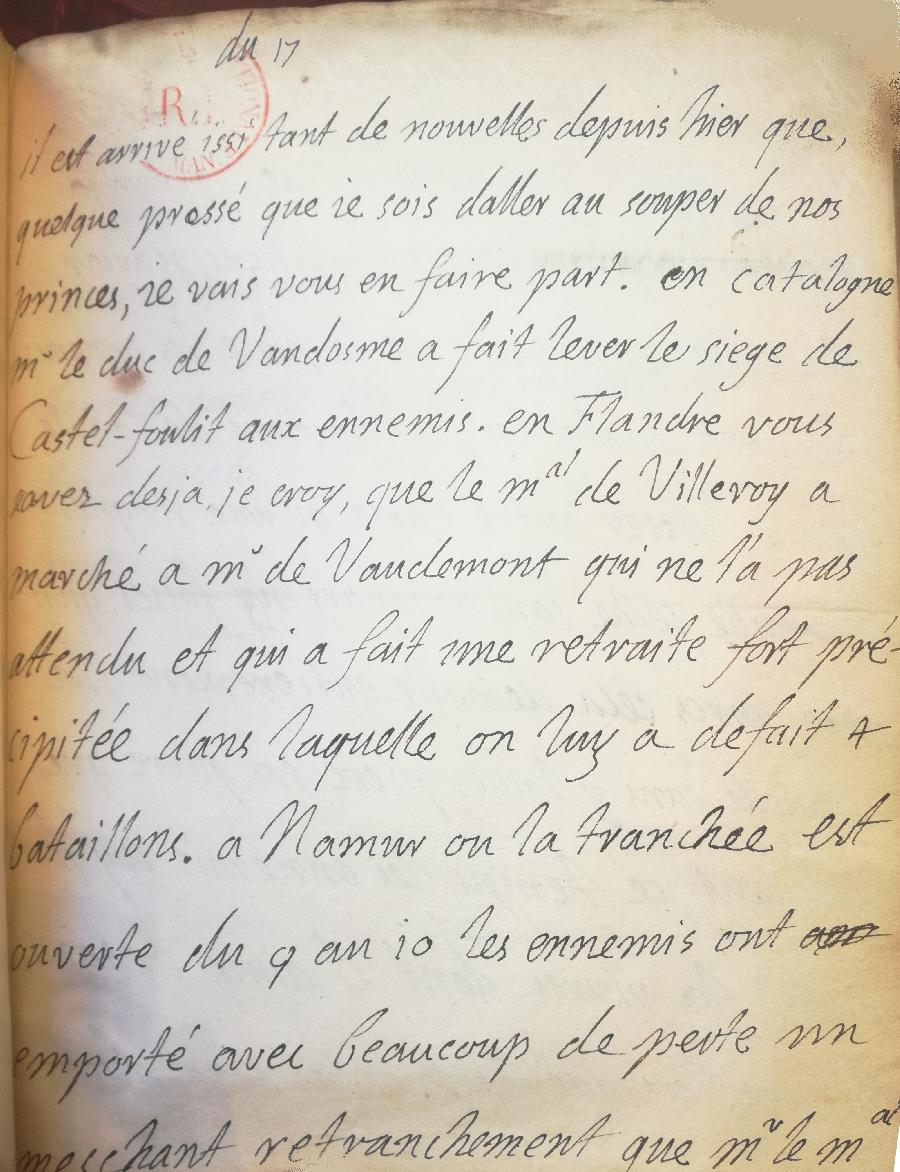 du 17
il est arrive issi tant de nouvelles depuis hier que,
quelque pressé que ie sois daller au souper de nos
princes, ie vais vous en faire part. en catalogne
mr le duc de Vandosme a fait lever le siege de
Castel-foulit aux ennemis. en Flandre vous
savez desja, je croy, que le mal de Villeroy a
marché a mr de Vaudemont qui ne l'a pas
attendu et qui a fait une retraite fort pré-
cipitée dans laquelle on luy a defait 4
bataillons. a Namur ou la tranchée est
ouverte du 9 au 10 les ennemis ont
emporté avec beaucoup de perte un
meschant retranchement que mr le mal